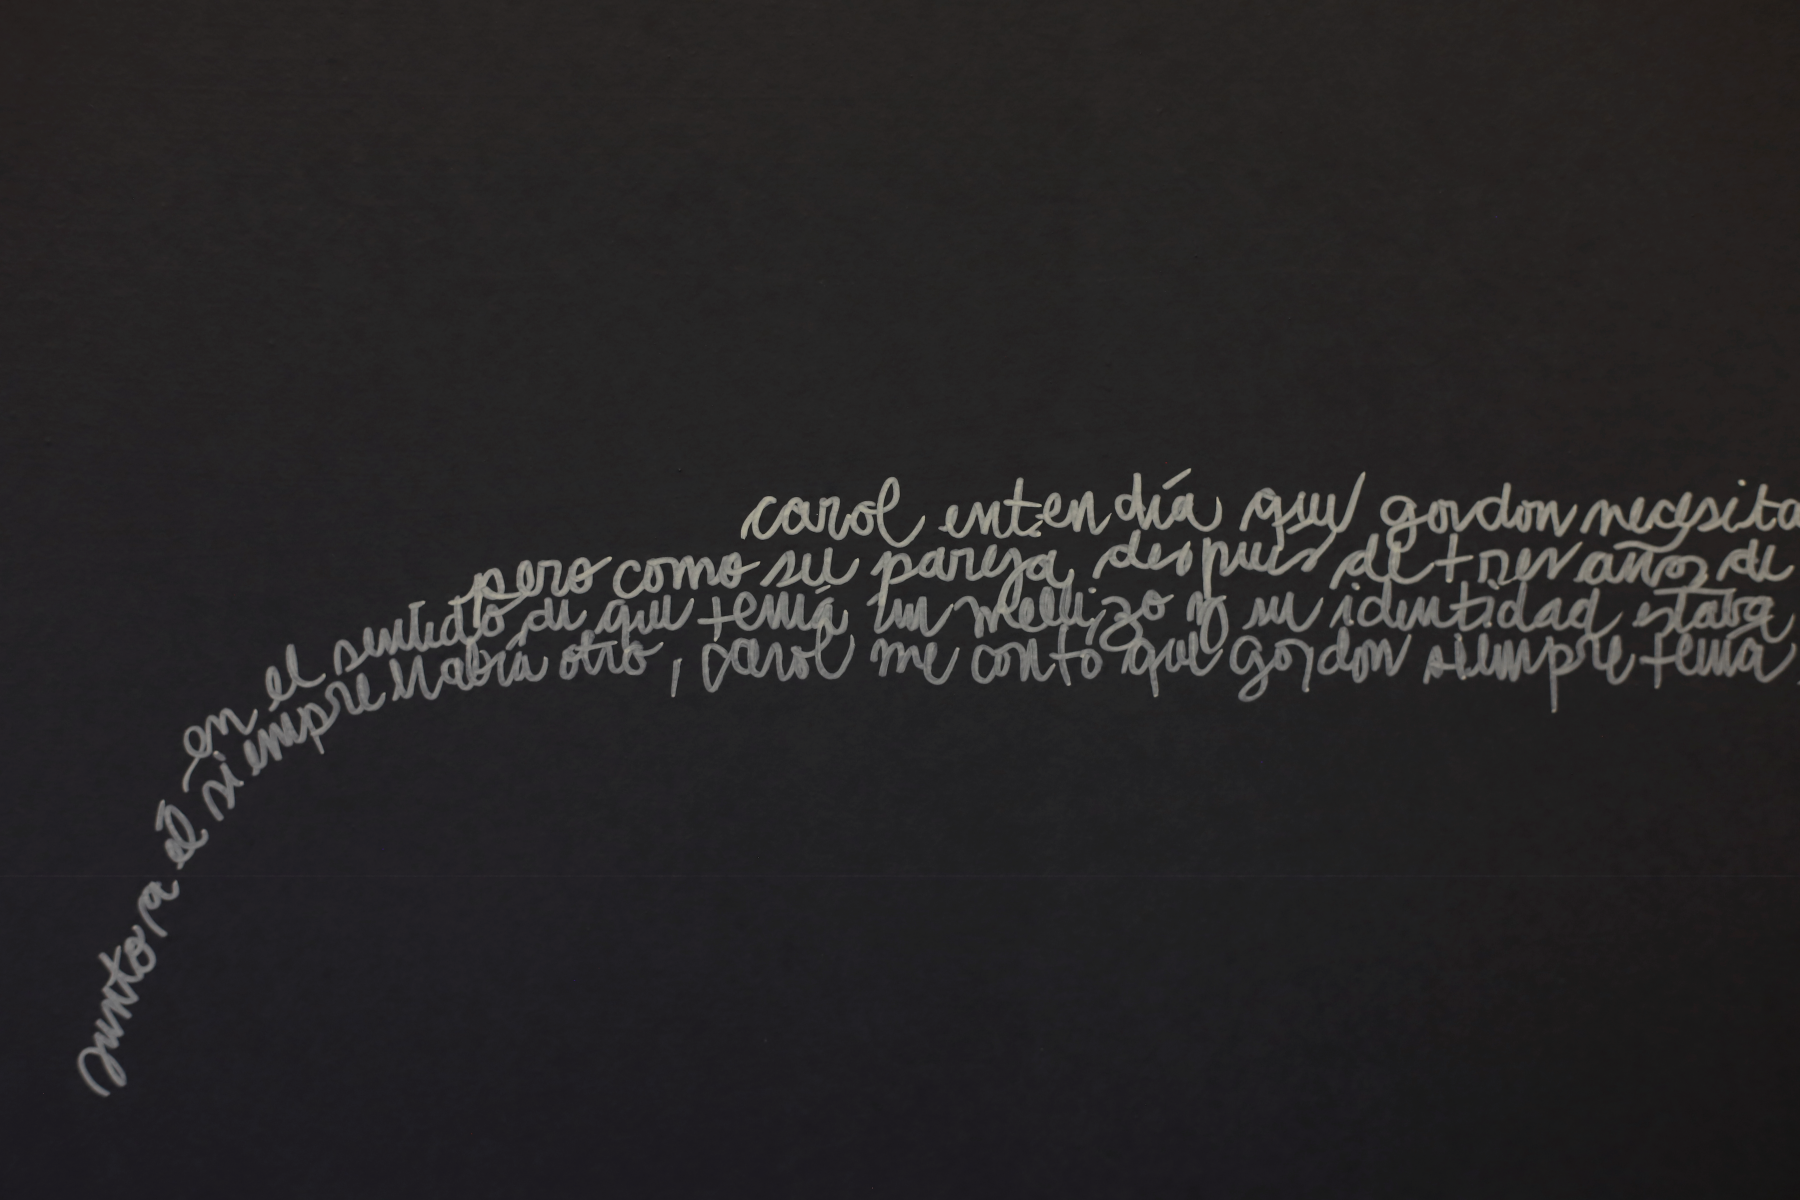 carol entendía que gordon necesita
pero como su pareja, después de tres años de
en el sentido de que tenía un mellizo y su identidad estaba
junto a él siempre había otro, carol me contó que gordon siempre tenía